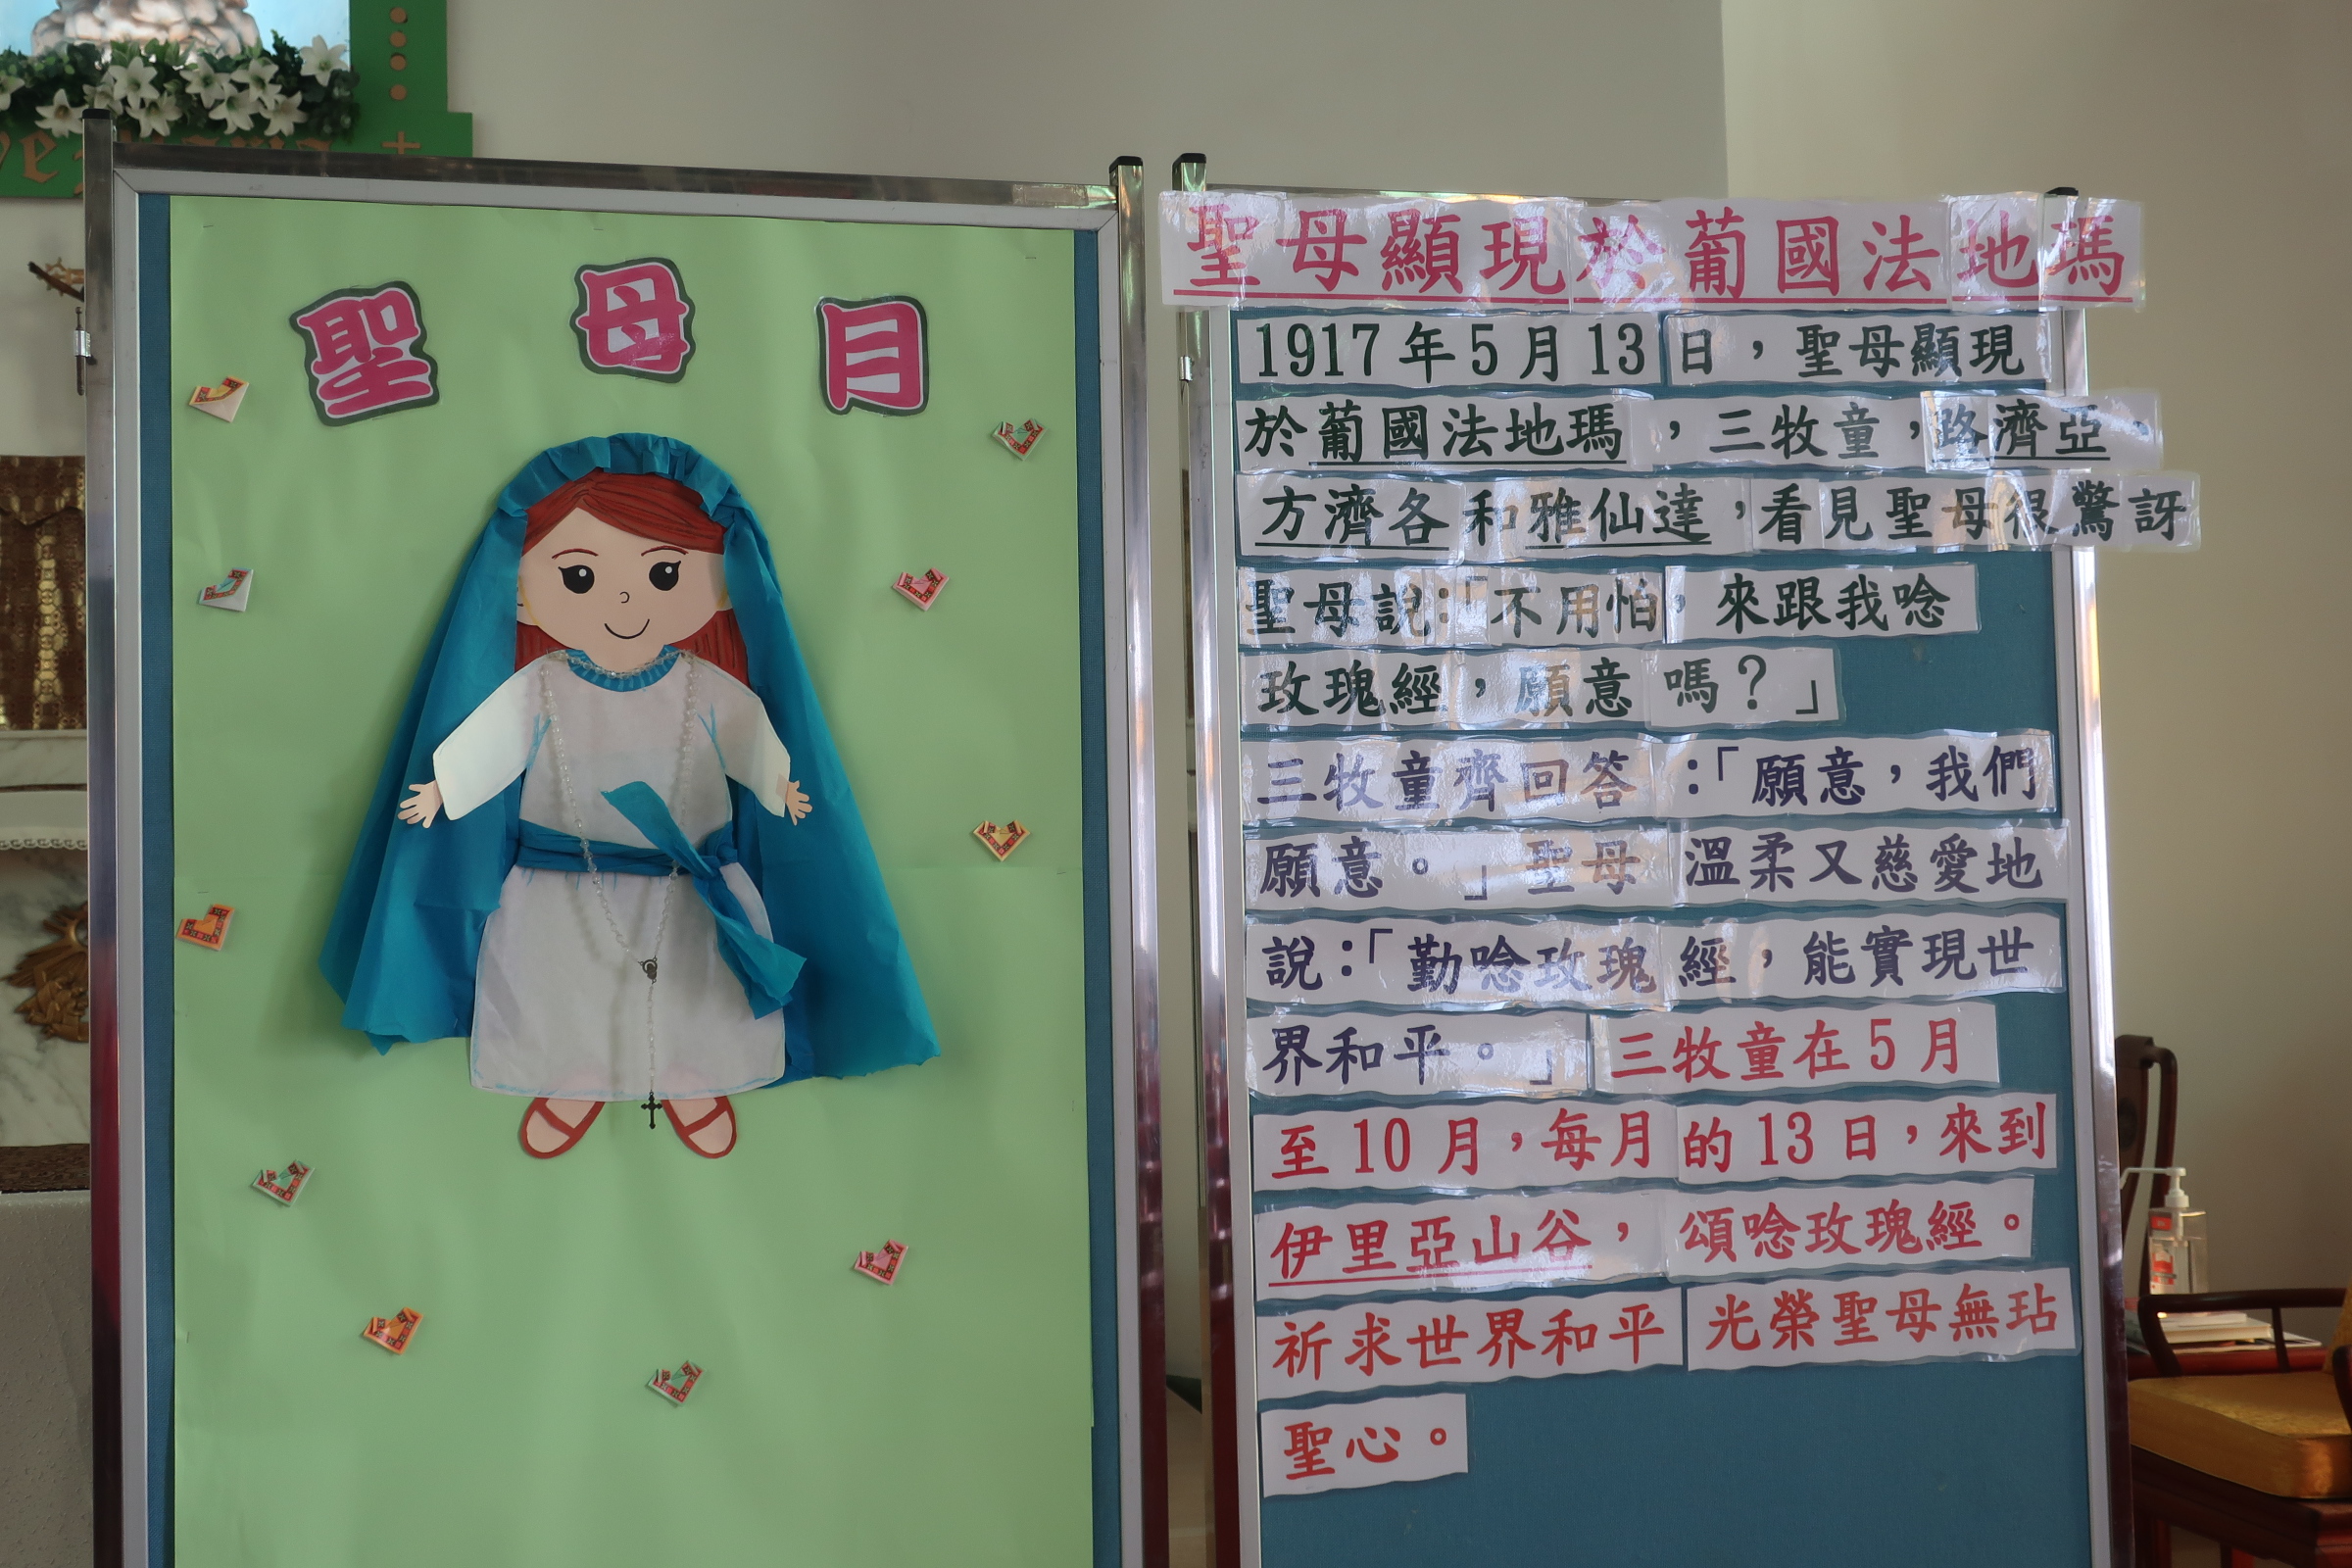 聖母月
聖母顯現於葡國法地瑪
1917年5月13日，聖母顯現
於葡國法地瑪，三牧童，路濟亞、
方濟各和雅仙達，看見聖母很驚訝
聖母說：「不用怕，來跟我唸
玫瑰經，願意嗎？」
三牧童齊回答：「願意，我們
願意。」聖母溫柔又慈愛地
說：「勤唸玫瑰經，能實現世
界和平。」三牧童在5月
至10月，每月的13日，來到
伊里亞山谷，頌唸玫瑰經。
祈求世界和平光榮聖母無玷
聖心。